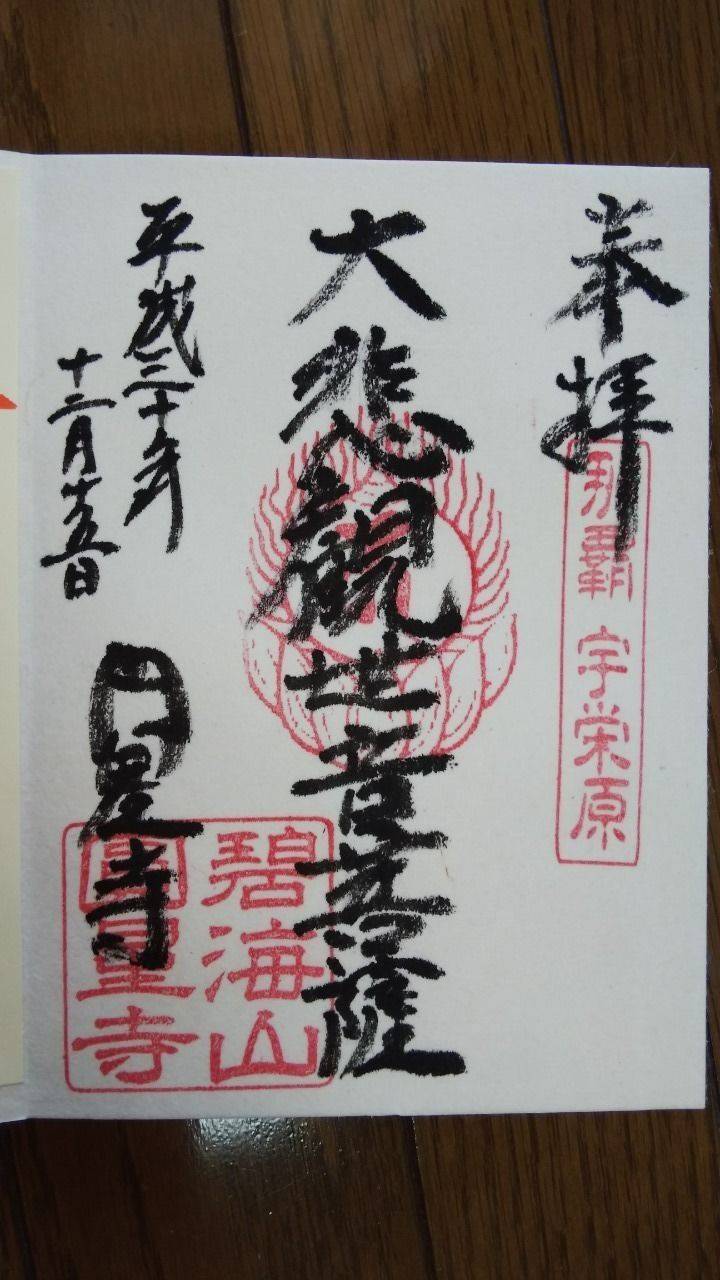 奉拝
那覇 宇栄原
大悲観世音菩薩
平成三十年
十二月十五日
円星寺
碧海山
圓星寺